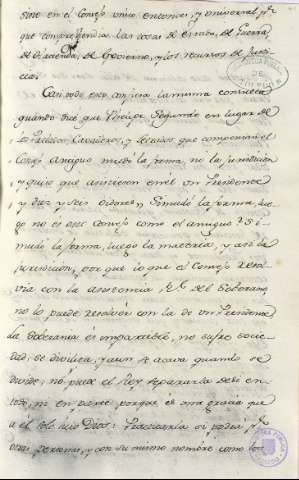 sino en el Consejo unico entonces, y universal p.r
que comprehendia las cosas de estado, de Guerra,
de Hacienda, de Govierno, y los recursos de Justi-
cia.
Casi todo esto confiesa la misma consulta
quando dice que Phelipe Segundo en lugar de
los Cavalleros, y que componian el
Consejo antiguo mudó la forma, no la jurisdiccion
y quiso que asistiesen en él un Presidente
y diez y seis Oidores, Si mudó la forma, lue-
go no es este Consejo como el antiguo? Si
mudó la forma, luego la materia, y asi la
jurisdiccion, por que lo que el Consejo resol-
via con la asistencia R.l del Soberano
no lo puede resolver con la de un Presidente
La Soberania es impartible, no sufre socie-
dad, se divilica, y aun se acava quando se
divide, no puede el Rey separarla de si en-
tera, ni en parte porque es una gracia que
a él solo hizo Dios: Practicarla si podrá, p.r
otras personas, y con su mismo nombre como los